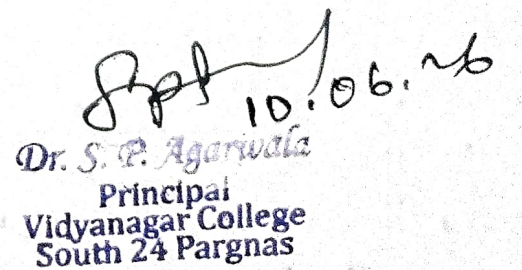 10.06.26
Dr. S. P. Agarwala
Principal
Vidyanagar College
South 24 Pargnas